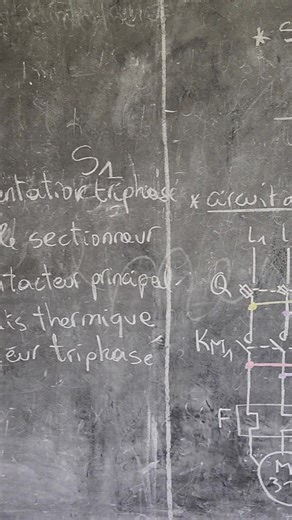 S1
entation triphasé
le sectionneur
ntacteur principal.
ais thermique
eur triphasé
* S
* circuit d
L1 L
Q
KM1
F
M
3~